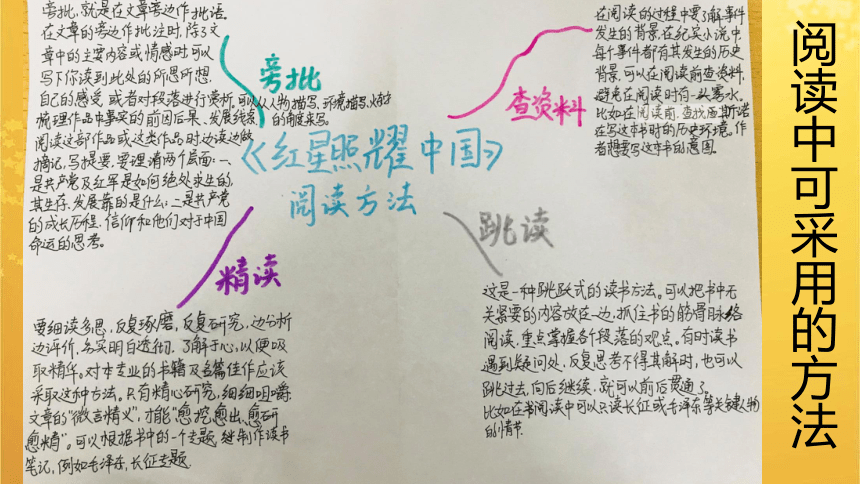 旁批，就是在文章旁边作批语。
在文章的旁边作批注时，除了文
章中的主要内容或情感时，可以
写下你读到此处的所思所想，
自己的感受，或者对段落进行赏析，可以从人物描写、环境描写、
梳理作品中事实的前因后果、发展线索，的角度来写。
阅读这部作品或这类作品时，边读边做
摘记，写提要，要理清两个层面：一、
是共产党及红军是如何绝处求生的，
其生存、发展靠的是什么；二是共产党
的成长历程、信仰和他们对于中国
命运的思考。
旁批
查资料
在阅读的过程中要了解事件
发生的背景，在纪实小说中，
每个事件都有其发生的历史
背景，可以在阅读前查资料，
避免在阅读时有一头雾水，
比如在阅读前，查找斯诺
在写这本书时的历史环境。作
者想要写这本书的意图。
《红星照耀中国》
阅读方法
精读
跳读
要细读多思，反复琢磨，反复研究，边分析
边评价，务实明白透彻，了解于心，以便吸
取精华。对本专业的书籍及名篇佳作应该
采取这种方法。只有精心研究，细细咀嚼，
文章的“微言精义”，才能“愈挖愈出，愈研
愈精”。可以根据书中的一个专题，继制作读书
笔记，例如毛泽东，长征专题.
这是一种跳跃式的读书方法。可以把书中无
关紧要的内容放在一边，抓住书的筋骨脉络
阅读，重点掌握各个段落的观点。有时读书
遇到疑问处，反复思考不得其解时，也可以
跳过去，向后继续，就可以前后贯通了
比如在书阅读中可以只读长征或毛泽东等关键人物
的情节.
阅读中可采用的方法